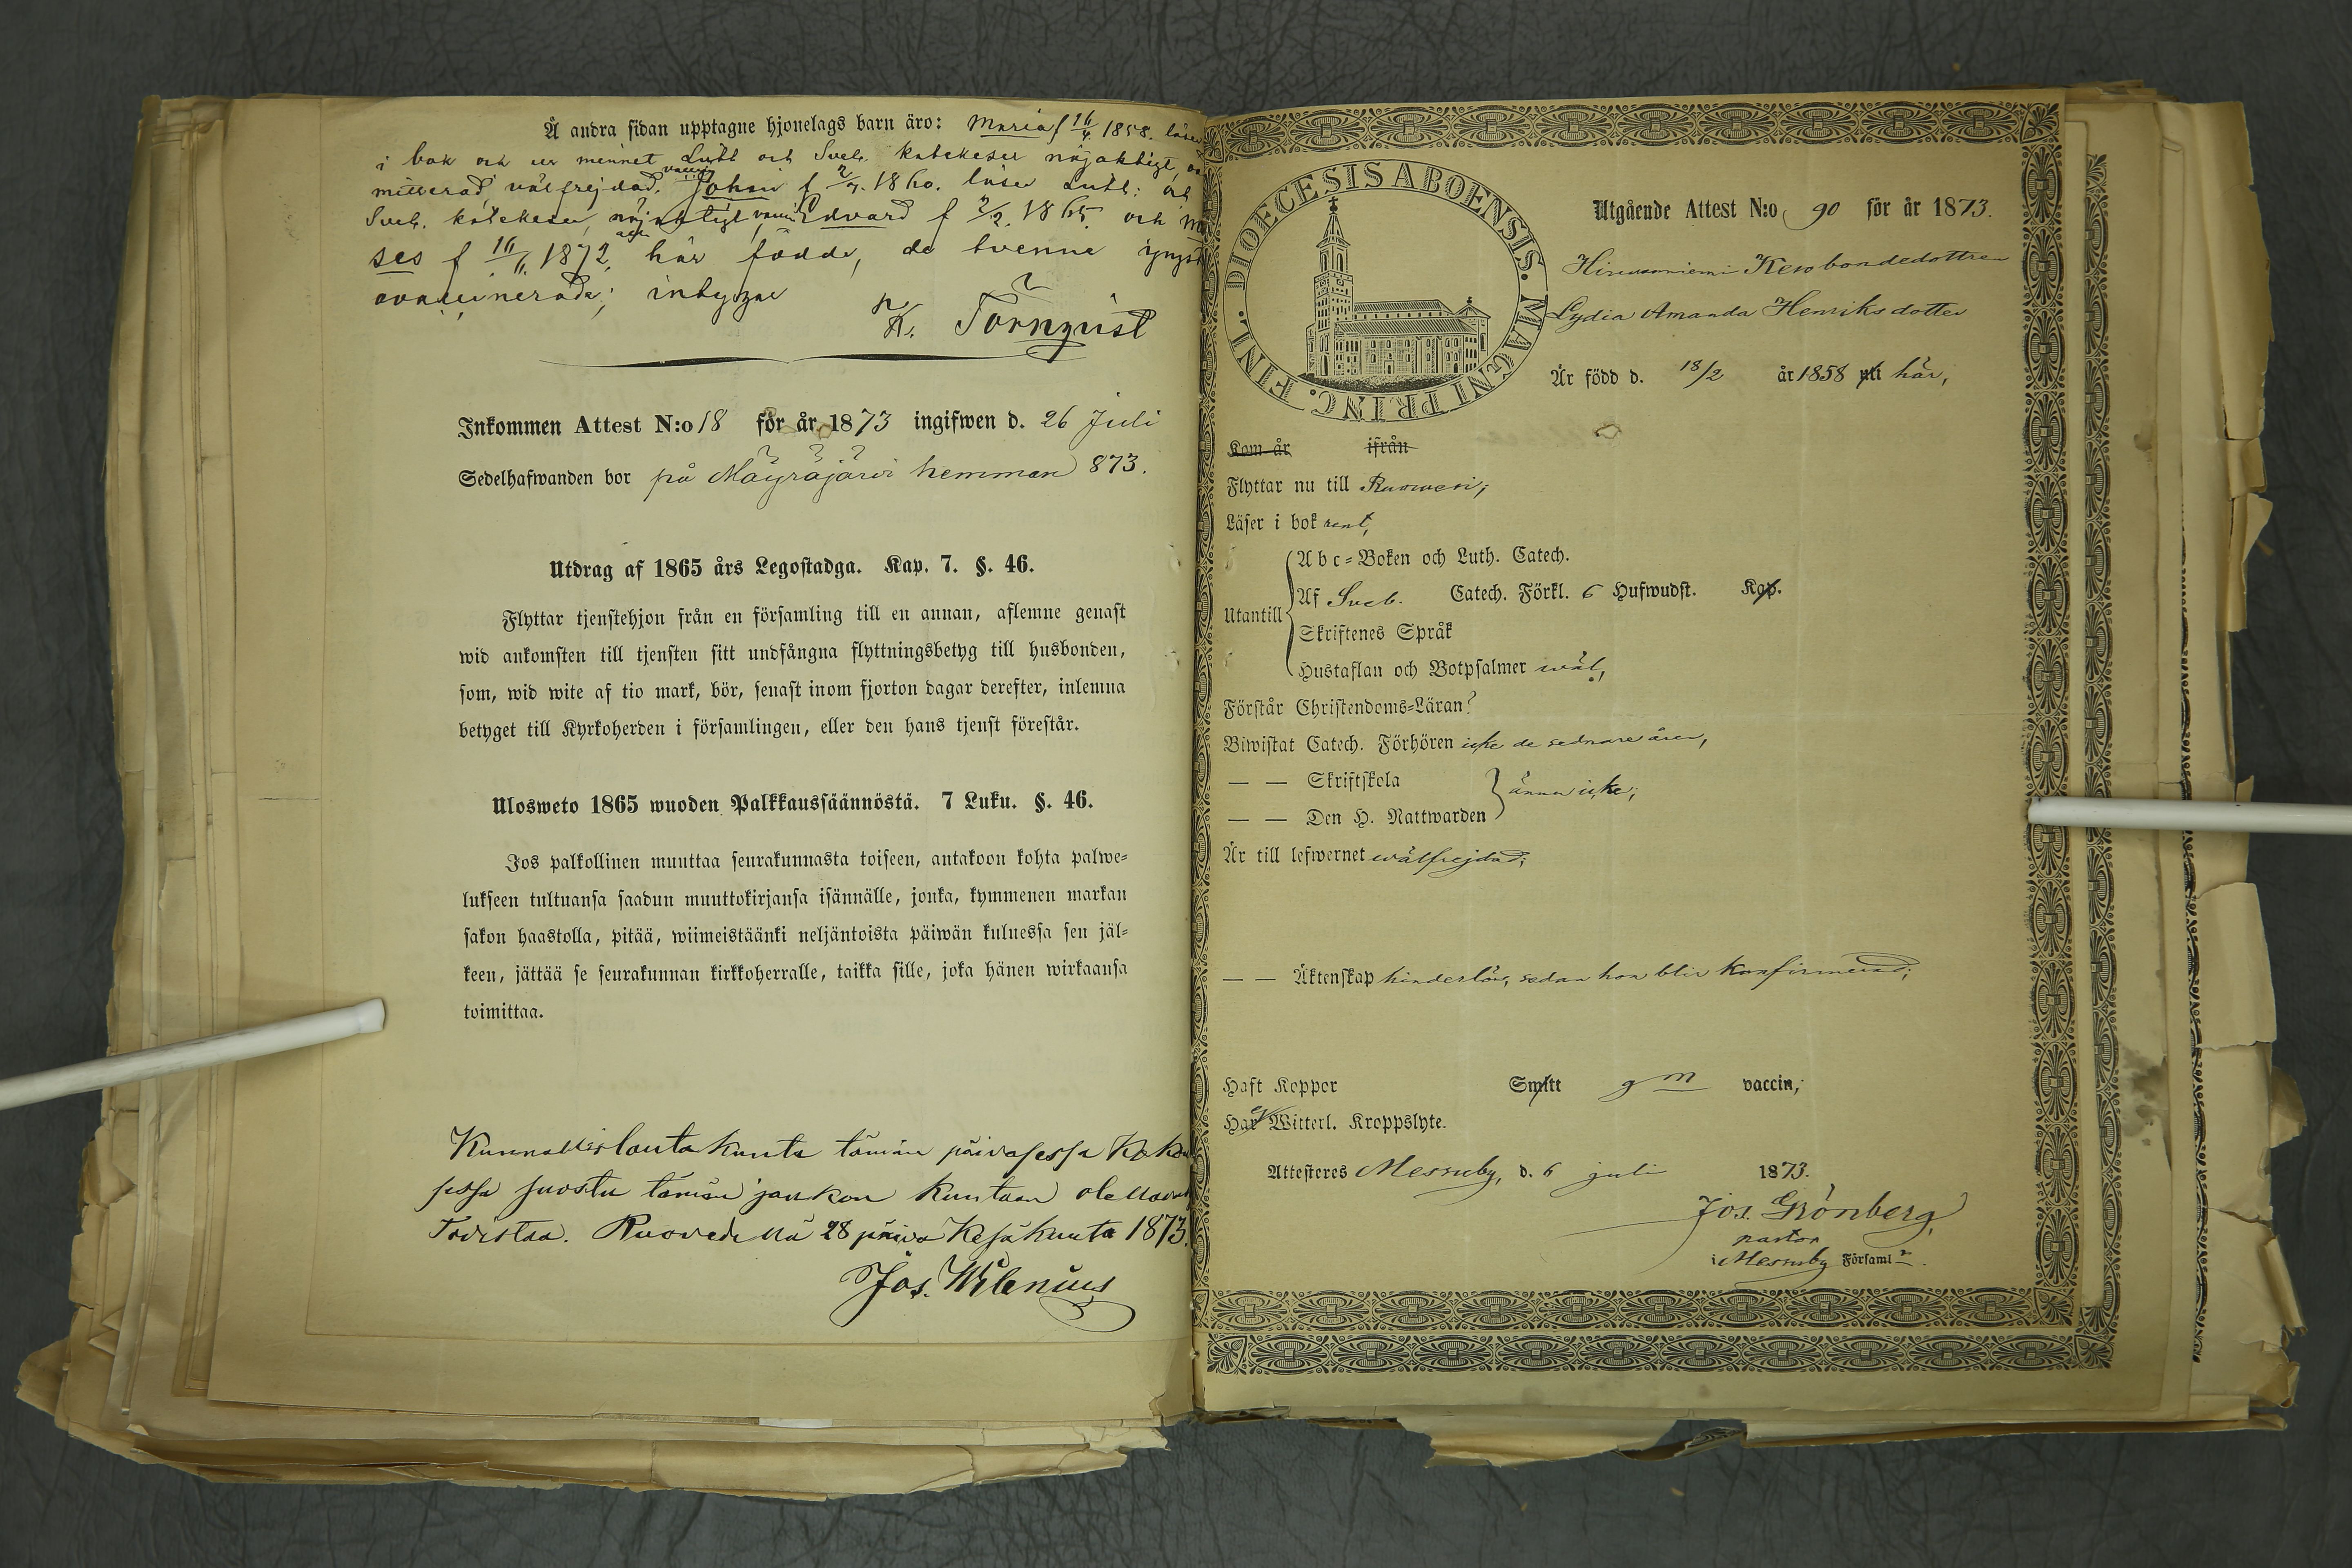 Å andra sidan upptagne hjonelags barn äro: Maria f 16/4 1858. läser
i bok och ur minnet Luth och Sveb. katekeser nöjaktigt,
välfrejdad, vaccin Johan f 2/7. 1860. läser Luth: och
Sveb. katekeser, nöjaktigt, vaccin Edvard f 2/2. 1865 och Mo
ses f 16/6 1872, här födde, de tvenne yngst
ovaccinerade; intygar
K. Törnqvist
Inkommen Attest N:o 18 för år 1873 ingifwen d. 26 Juli
Sedelhafwanden bor på Mäyräjärvi hemman 873.
Utdrag af 1865 års Legostadga. Kap. 7. §. 46.
Flyttar tjenstehjon från en församling till en annan, aflemne genast
wid ankomsten till tjensten sitt undfångna flyttningsbetyg till husbonden,
som, wid wite af tio mark, bör, senast inom fjorton dagar derefter, inlemna
betyget till Kyrkoherden i församlingen, eller den hans tjenst förestår.
Ulosweto 1865 wuoden Palkkaussäännöstä. 7 Luku. §. 46.
Jos palkollinen muuttaa seurakunnasta toiseen, antakoon kohta palwe-
lukseen tultuansa saadun muuttokirjansa isännälle, jonka, kymmenen markan
sakon haastolla, pitää, wiimeistäänki neljäntoista päiwän kuluessa sen jäl-
keen, jättää se seurakunnan kirkkoherralle, taikka sille, joka hänen wirkaansa
toimittaa.
Kunnallislautakunta tämän päiväsessä Koko
sessa suostu tämän joukon kuntaan
Todistaa. Ruovedellä 28 päivä Kesäkuuta 1873.
Jos. Wilenius
DIOECESIS ABOENSIS. MAGNI PRINC. FINL.
Utgående Attest N:o 90 för år 1873.
Keso bondedottren
Lydia Amanda Henriksdotter
Är född d. 18/2 år 1858 uti här,
Kom år ifrån
Flyttar nu till Ruowesi;
Läser i bok rent,
Utantill
Abc-Boken och Luth. Catech.
Af Sveb. Catech. Förkl. 6 Hufwudst. Kap.
Skriftenes Språk
Hustaflan och Botpsalmer wäl,
Förstår Christendoms-Läran?
Biwistat Catech. Förhören icke de sednare åren,
— — Skriftskola
ännu icke;
— — Den H. Nattwarden
Är till lefwernet wälfrejdad;
— — Äktenskap hinderlös, sedan hon blir konfirmerad;
Haft Koppor Smitt g m vaccin,
Har Witterl. Kroppslyte.
Attesteres Messuby, d. 6 juli 1873.
Jos. Grönberg,
pastor
i Messuby Församl.